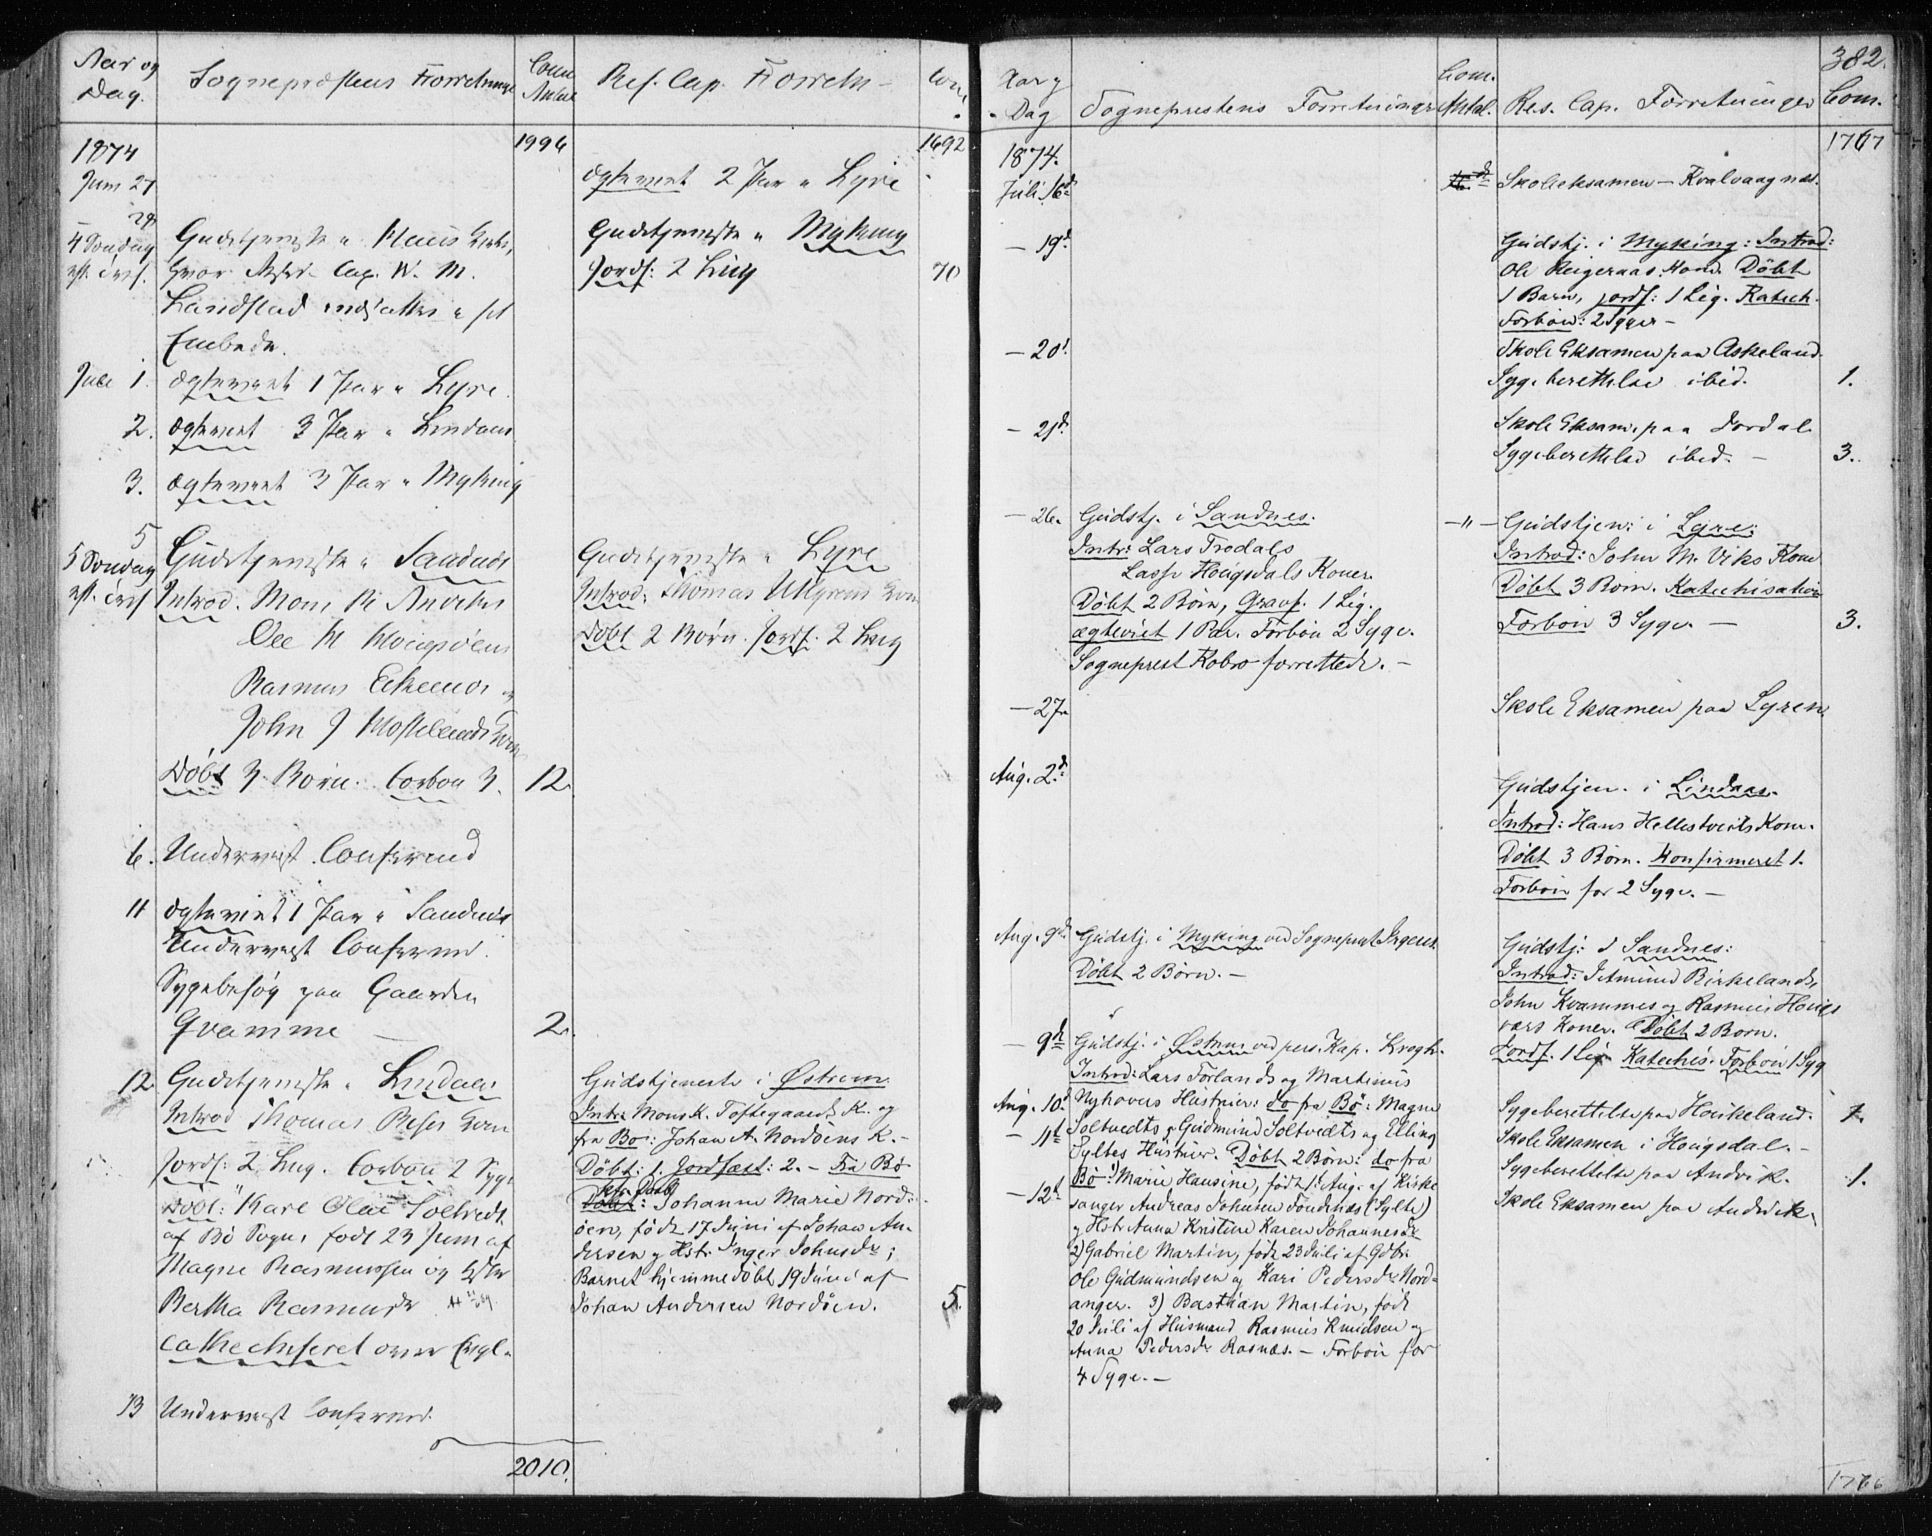 382.
Aar og Dag.
Sognepræstens Forretninger
Com Antal
Res. Cap. Forretn-
Com.
1874
1996
1692
Juni 27
ægteviet 2 Par i Lyre
28
4 Søndag eft. Tref.
Gudstjeneste i
hvor Cap. W. M.
Landstad indsattes i sit
Embede.
Gudstjeneste i Myking
Jordf: 2 Liig
70
Juli 1.
ægteviet 1 Par i Lyre.
2.
ægteviet 3 Par i Lindaas
3.
ægteviet 3 Par i Myking
5
5 Søndag eft. Tref
Gudstjeneste i Sandnes
Introd. Mons
Ole M
Rasmus
John J Mostelands Kone
Døbt 3 Børn. Forbøn 3.
12.
Gudstjeneste i Lyre
Introd: Thomas Kone
Døbt 2 Børn. Jordf. 2 Liig
6.
Underviist Confirmd
11
ægteviet 1 Par i Sandnes
Underviist Confirmd.
Sygebesøg paa Gaarden
Qvamme —
2.
12
Gudstjeneste i Lindaas
Introd Thomas Kone
Jordf: 2 Liig. Forbøn 2 Syge
Døbt: Karl Olai Soltvedt
af Bø Sogn, født 23 Juni af
Magne Rasmussen og Hstr
Bertha Rasmusdr
Cathechiseret over Evgl.
Gudstjeneste i Østrem.
Intr: Mons K. Toftegaards K. og
fra Bø: Johan A. Nordøens K. -
Døbt: 1. Jordfæst: 2. - Fra Bø
Johanne Marie Nord-
øen, født 17 Juni af Johan An-
dersen og Hstr Inger Johnsdr;
Barnet hjemmedøbt 19 Juni af
Johan Andersen Nordøen.
5.
13
Underviist Confirmd.
2010.
Aar og Dag
Sogneprestens Forretninger
Com. Antal.
Res. Cap. Forretninger
Com.
1874.
1767
Juli 16d
Skoleeksamen - Kvalvaagnæs.
- 19d
Gudstj. i Myking: Introd:
Ole Kone. Døbt
1 Barn, jordf: 1 Lig. Katech.
Forbøn: 2 Syge -
- 20d
Skole Eksamen paa Askeland.
Sygeberettelse ibid.
1.
- 21d
Skole Eksam. paa Dordal
Sygeberettelse ibid. -
3.
- 26.
Gudstj. i Sandnes.
Intr: Lars Trodals
Lasse Hougsdals Koner.
Døbt 2 Børn, Gravf. 1 Lig.
ægteviet 1 Par. Forbøn 2 Syge.
Sogneprest Kobro forrettede. -
- " -
Gudstjen: i Lyre:
Introd: John M. Viks Kone
Døbt 3 Børn. Katechisation
Forbøn 3 Syge. -
3.
- 27
Skole Eksamen paa Lyren
Aug. 2d
Gudstjen. i Lindaas.
Introd: Hans Hellestveits Kone.
Døbt 3 Børn. Konfirmeret 1.
Forbøn for 2 Syge. -
Aug. 9de
Gudstj. i Myking ved Sogneprest
Døbt 2 Børn. -
Gudstj: i Sandnes:
Introd: Birkelands,
John Kvammes og Rasmus
Koner. Døbt 2 Børn.
Jordf. 1 Lig Katechis. Forbøn 1 Syg
- 9d
Gudstj. i Østrem ved pers. Kap. Krogh.
Introd: Lars Førlands og Martinus
Nyhovers Hustruer: do fra Bø: Magne
Soltvedts, Gudmund Soltvedts og Elling
Syltes Hustruer. Døbt 2 Børn: do fra
Bø: 1) Marie Hansine, født 1. Aug. af Kirke
sanger Andreas Johnsen Fondenæs (Sylte)
og Hstr Anna Kristine Karen Johannesdr
2) Gabriel Martin, født 23 Juli af Gdbr.
Ole Gudmundsen og Kari Pedersdr Nord-
anger. 3) Bastian Martin, født
20 Juli af Husmand Rasmus Knudsen og
Anna Pedersdr Rosnæs. - Forbøn for
4 Syge. -
Aug. 10d
Sygeberettelse paa Haukeland.
1.
- 11t
Skole Eksamen i Hougsdal. -
Sygeberettelse paa Andvik.
1.
- 12t
Skole Eksamen paa Andvik.
1776